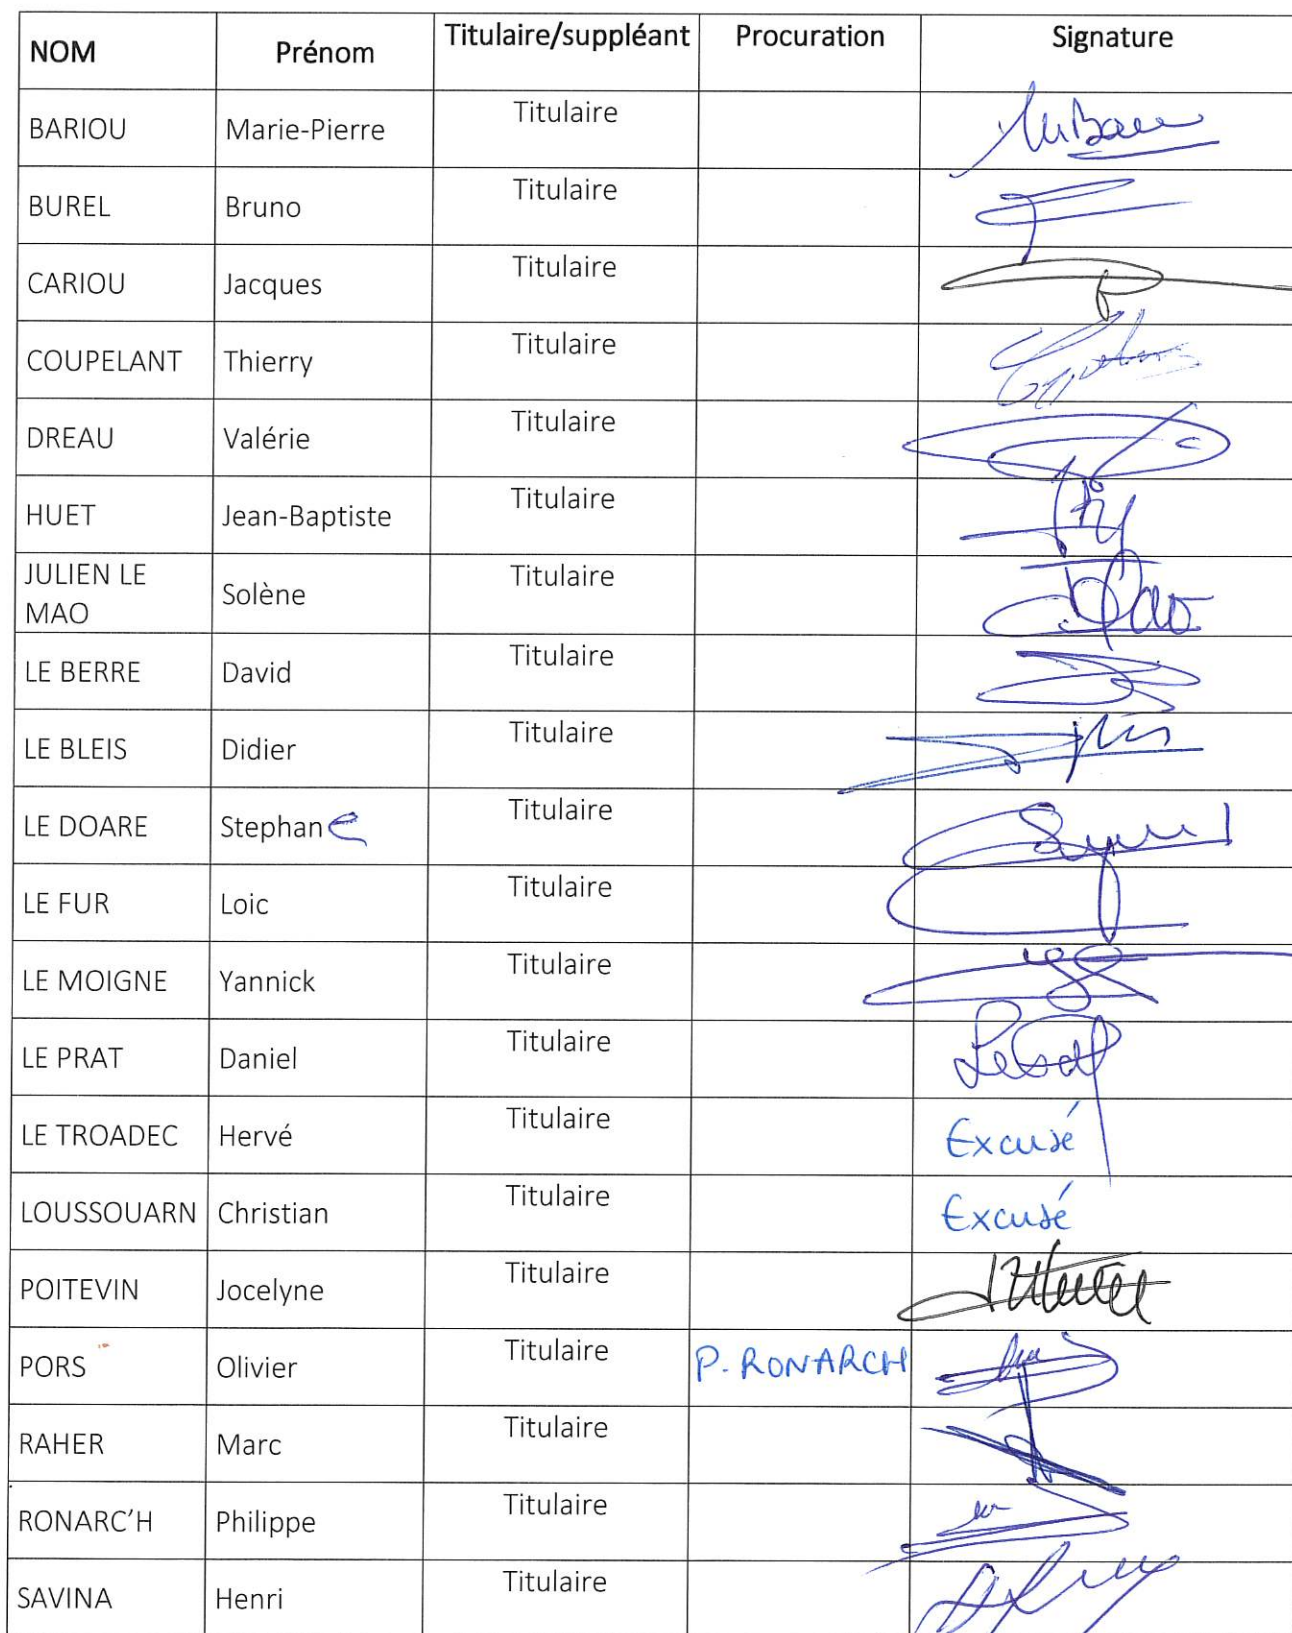 NOM Prénom Titulaire/suppléant Procuration Signature
BARIOU Marie-Pierre Titulaire
BUREL Bruno Titulaire
CARIOU Jacques Titulaire
COUPELANT Thierry Titulaire
DREAU Valérie Titulaire
HUET Jean-Baptiste Titulaire
JULIEN LE
MAO Solène Titulaire
LE BERRE David Titulaire
LE BLEIS Didier Titulaire
LE DOARE Stephane Titulaire
LE FUR Loic Titulaire
LE MOIGNE Yannick Titulaire
LE PRAT Daniel Titulaire
LE TROADEC Hervé Titulaire Excusé
LOUSSOUARN Christian Titulaire Excusé
POITEVIN Jocelyne Titulaire
PORS Olivier Titulaire P. RONARCH
RAHER Marc Titulaire
RONARC'H Philippe Titulaire
SAVINA Henri Titulaire